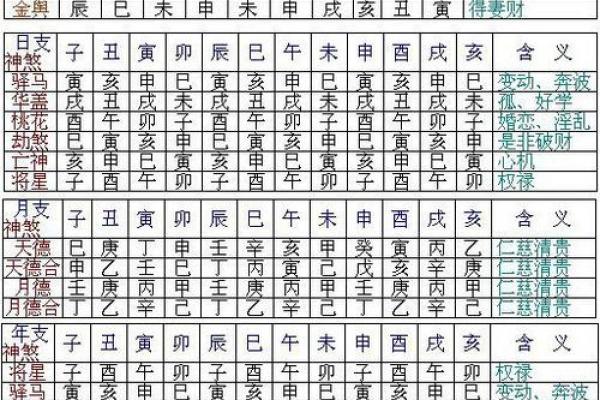 金舆 辰 巳 未 申 未 申 戌 亥 丑 寅 得妻财
日支 子 丑 寅 卯 辰 巳 午 未 申 酉 戌 亥 含 义
神煞
驿马 寅 亥 申 巳 寅 亥 申 巳 寅 亥 申 巳 变动、奔波
华盖 辰 丑 戌 未 辰 丑 戌 未 辰 丑 戌 未 孤、好学
桃花 酉 午 卯 子 酉 午 卯 子 酉 午 卯 子 婚恋、淫乱
劫煞 巳 寅 亥 申 巳 寅 亥 申 巳 寅 亥 申 是非破财
亡神 亥 申 巳 寅 亥 申 巳 寅 亥 申 巳 寅 心机
将星 子 酉 午 卯 子 酉 午 卯 子 酉 午 卯 权禄
月支 子 丑 寅 卯 辰 巳 午 未 申 酉 戌 亥 含 义
神煞
天德 巳 庚 丁 申 壬 辛 亥 甲 癸 寅 丙 乙 仁慈清贵
天德合 申 乙 壬 巳 丁 丙 寅 己 戊 亥 辛 庚 仁慈清贵
月德 壬 庚 丙 甲 壬 庚 丙 甲 壬 庚 丙 甲 仁慈清贵
月德合 丁 乙 辛 己 丁 乙 辛 己 丁 乙 辛 己 仁慈清贵
年支 子 丑 寅 卯 辰 巳 午 未 申 酉 戌 亥 含 义
神煞
将星 子 酉 午 卯 子 酉 午 卯 子 酉 午 卯 权禄
驿马 寅 亥 申 巳 寅 亥 申 巳 寅 亥 申 巳 变动、奔波